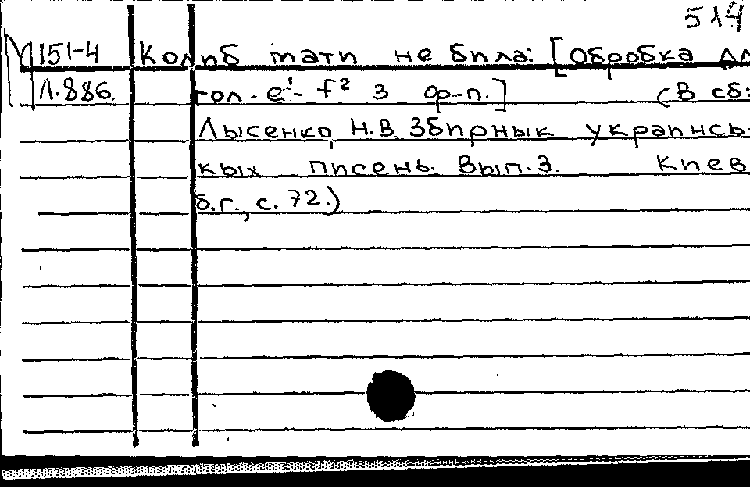 514
151-4 Колиб мати не била: [Обробка дл
Л.886 гол. e¹- f² з ф-п.] (В сб:
Лысенко, Н.В. Збирнык украинсь-
кых писень. Вып.3. Киев
б.г., с. 72.)